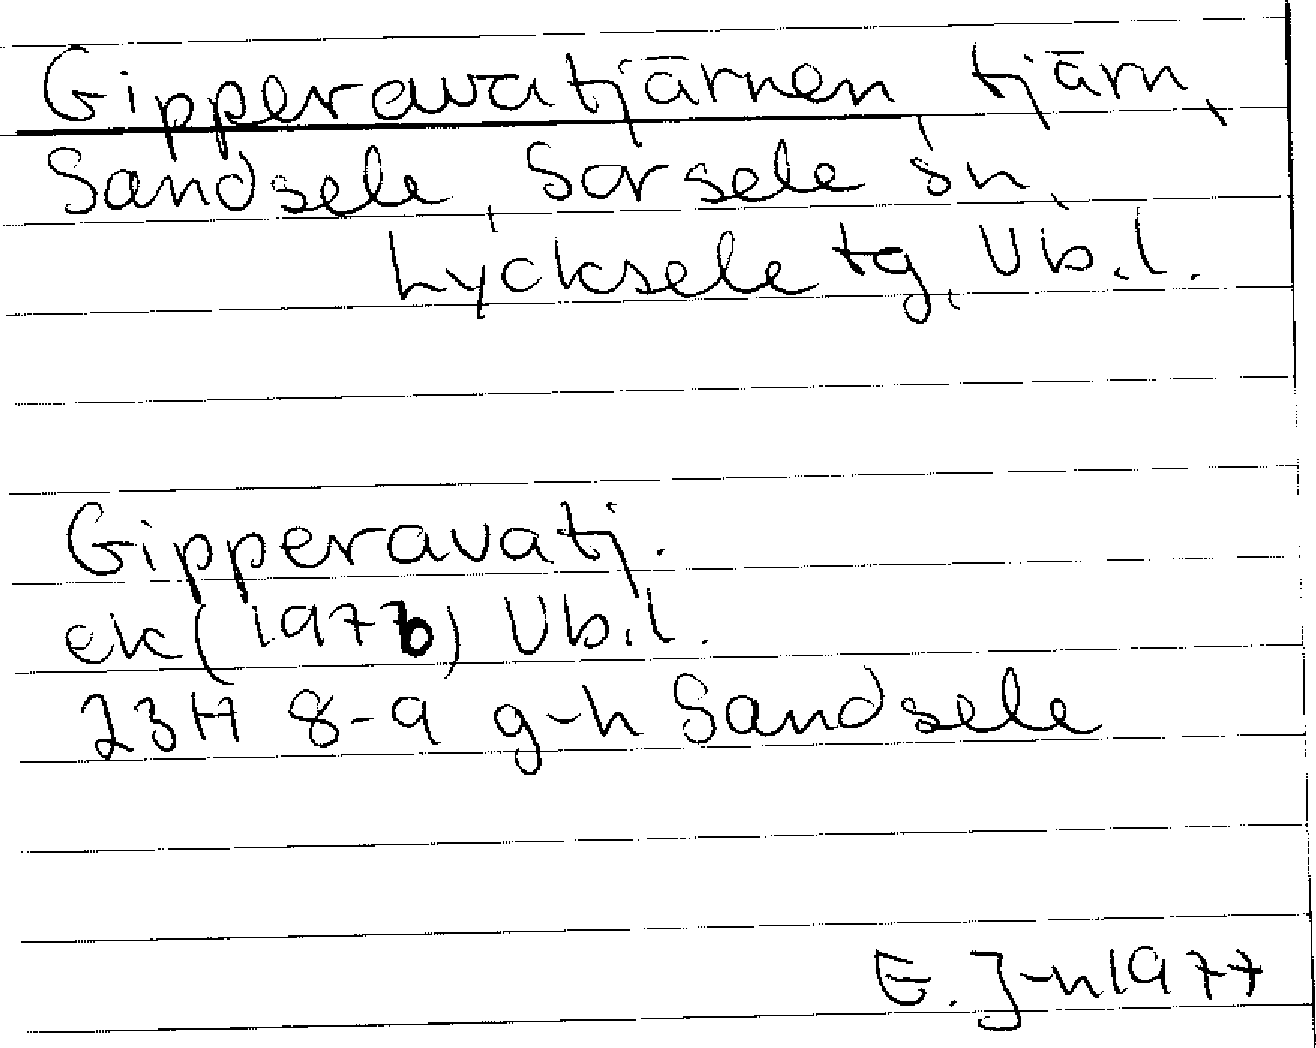 Gipperavatjärnen tjärn,
Sandsele, Sorsele sn,
Lycksele tg, Vb.l.
Gipperavatj.
ek (1976) Vb.l.
23H 8-9 g-h Sandsele
E. J-n 1977